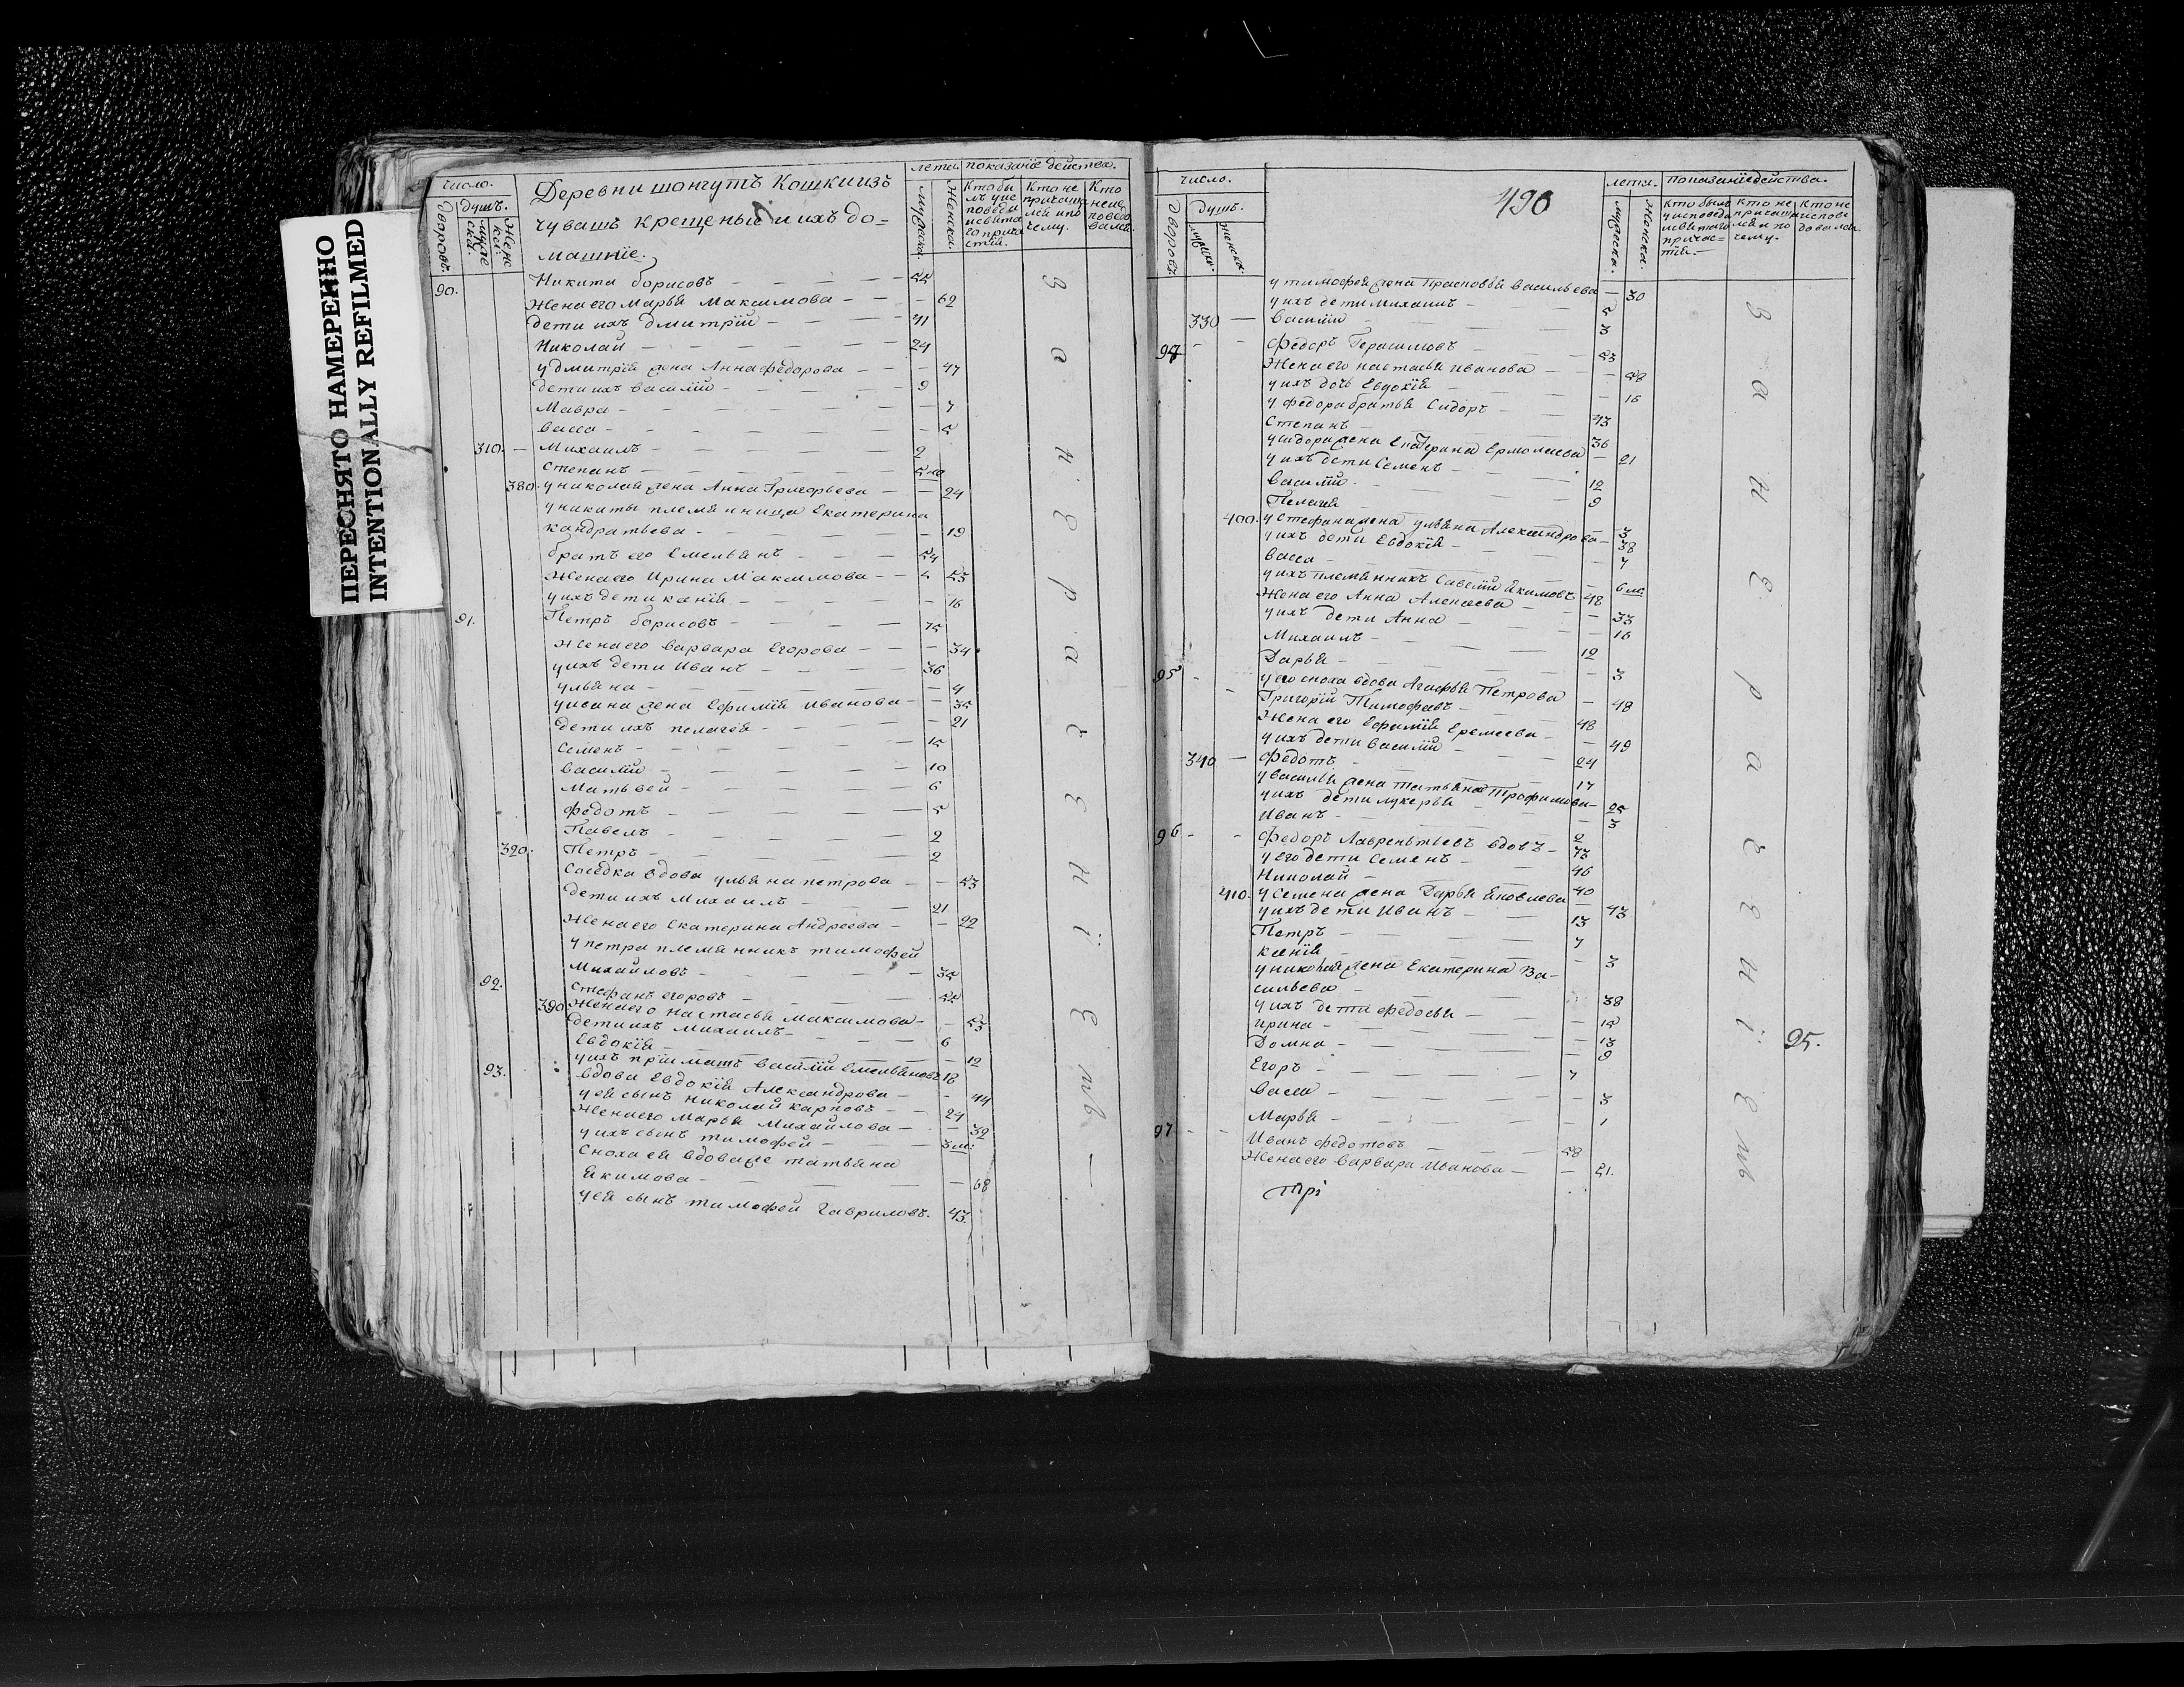 ПЕРЕСНЯТО НАМЕРЕННО
INTENTIONALLY REFILMED
число. лета. показанїе действа.
Дворовъ. Душъ. мужески. женски.
Деревни шонгутъ Кошки изъ
чувашъ крещеные и ихъ до=
машнїе.
90. Никита борисовъ
Жена его Марья Максимова — — 62
дети ихъ дмитрїй — 41
Николай — 24
у дмитрїя жена Анна федорова — 47
дети ихъ василїй — 9
Мавра — 7
васса — 5
310. Михаилъ — 2
Степанъ —
380. у николая жена Анна Григорьева — 24
у никиты племянница Екатерина
кандратьева — 19
братъ его Емельянъ — 54
Жена его Ирина Максимова — 53
у ихъ дети ксенїя — 16
91. Петръ борисовъ — 75
Жена его варвара Егорова — 34
у ихъ дети Иванъ — 36
ульяна — 4
у ивана жена Ефимїя иванова — 35
дети ихъ пелагея — 21
Семенъ — 15
василїй — 10
Матьвей — 6
федотъ — 5
Павелъ — 2
320. Петръ — 2
Соседка вдова ульяна петрова — 53
дети ихъ Михаилъ — 21
Жена его Екатерина Андреева — 22
у петра племянникъ тимофей
Михайловъ — 35
92. Стефанъ егоровъ — 52
390 Жена его настасья Максимова — 53
дети ихъ михаилъ — 6
Евдокїя — 12
у ихъ прїимашъ василїй Емельяновъ 18
93. вдова Евдокїя Александрова — 44
у ей сынъ николай карповъ — 24
Жена его марья Михайлова — 32
у ихъ сынъ тимофей — 3 м:
Сноха ей вдова же татьяна
Екимова — 68
у ей сынъ тимофей Гавриловъ. 43.
з а н е р а д е н ї е м ъ —
число. 490 лета. показанїе действа.
Дворовъ. Душъ. мужески. женски.
у тимофея жена Прасковья васильева — 30
у ихъ дети михаилъ — 5
330 — василїй — 3
94 федоръ Герасимовъ — 53
Жена его настасья иванова — 48
у ихъ дочь Евдокїя — 16
у федора братья Сидоръ — 43
Степанъ — 36
у сидора жена Екатерина Ермолаева — 21
у ихъ дети Семенъ — 12
василїй — 9
Пелагея — 3
400. у Стефана жена ульяна Александрова — 38
у ихъ дети Евдокїя — 7
васса — 6 м:
у ихъ племянникъ Савелїй Якимовъ 48
Жена его Анна Алексеева — 33
у ихъ дети Анна — 16
Михаилъ — 12
Дарья — 3
95 у его сноха вдова Агафья Петрова — 48
Григорїй Тимофеевъ — 48
Жена его Ефимїя Еремеева — 49
у ихъ дети василїй — 24
340 — федотъ — 17
у василья жена татьяна Трофимова — 25
у ихъ дети лукерья — 3
Иванъ — 2
96 федоръ Лаврентьевъ вдовъ — 73
у его дети Семенъ — 46
Николай — 40
410. у Семена жена Дарья Яковлева — 43
у ихъ дети Иванъ — 13
Петръ — 7
ксенїя — 3
у николая жена Екатерина Ва-
сильева — 38
у ихъ дети федосья — 15
ирина — 13
Домна — 9
Егоръ — 7
васса — 3
Марья — 1
97 Иванъ федотовъ — 58
Жена его варвара Иванова — 51.
з а н е р а д е н ї е м ъ
25.